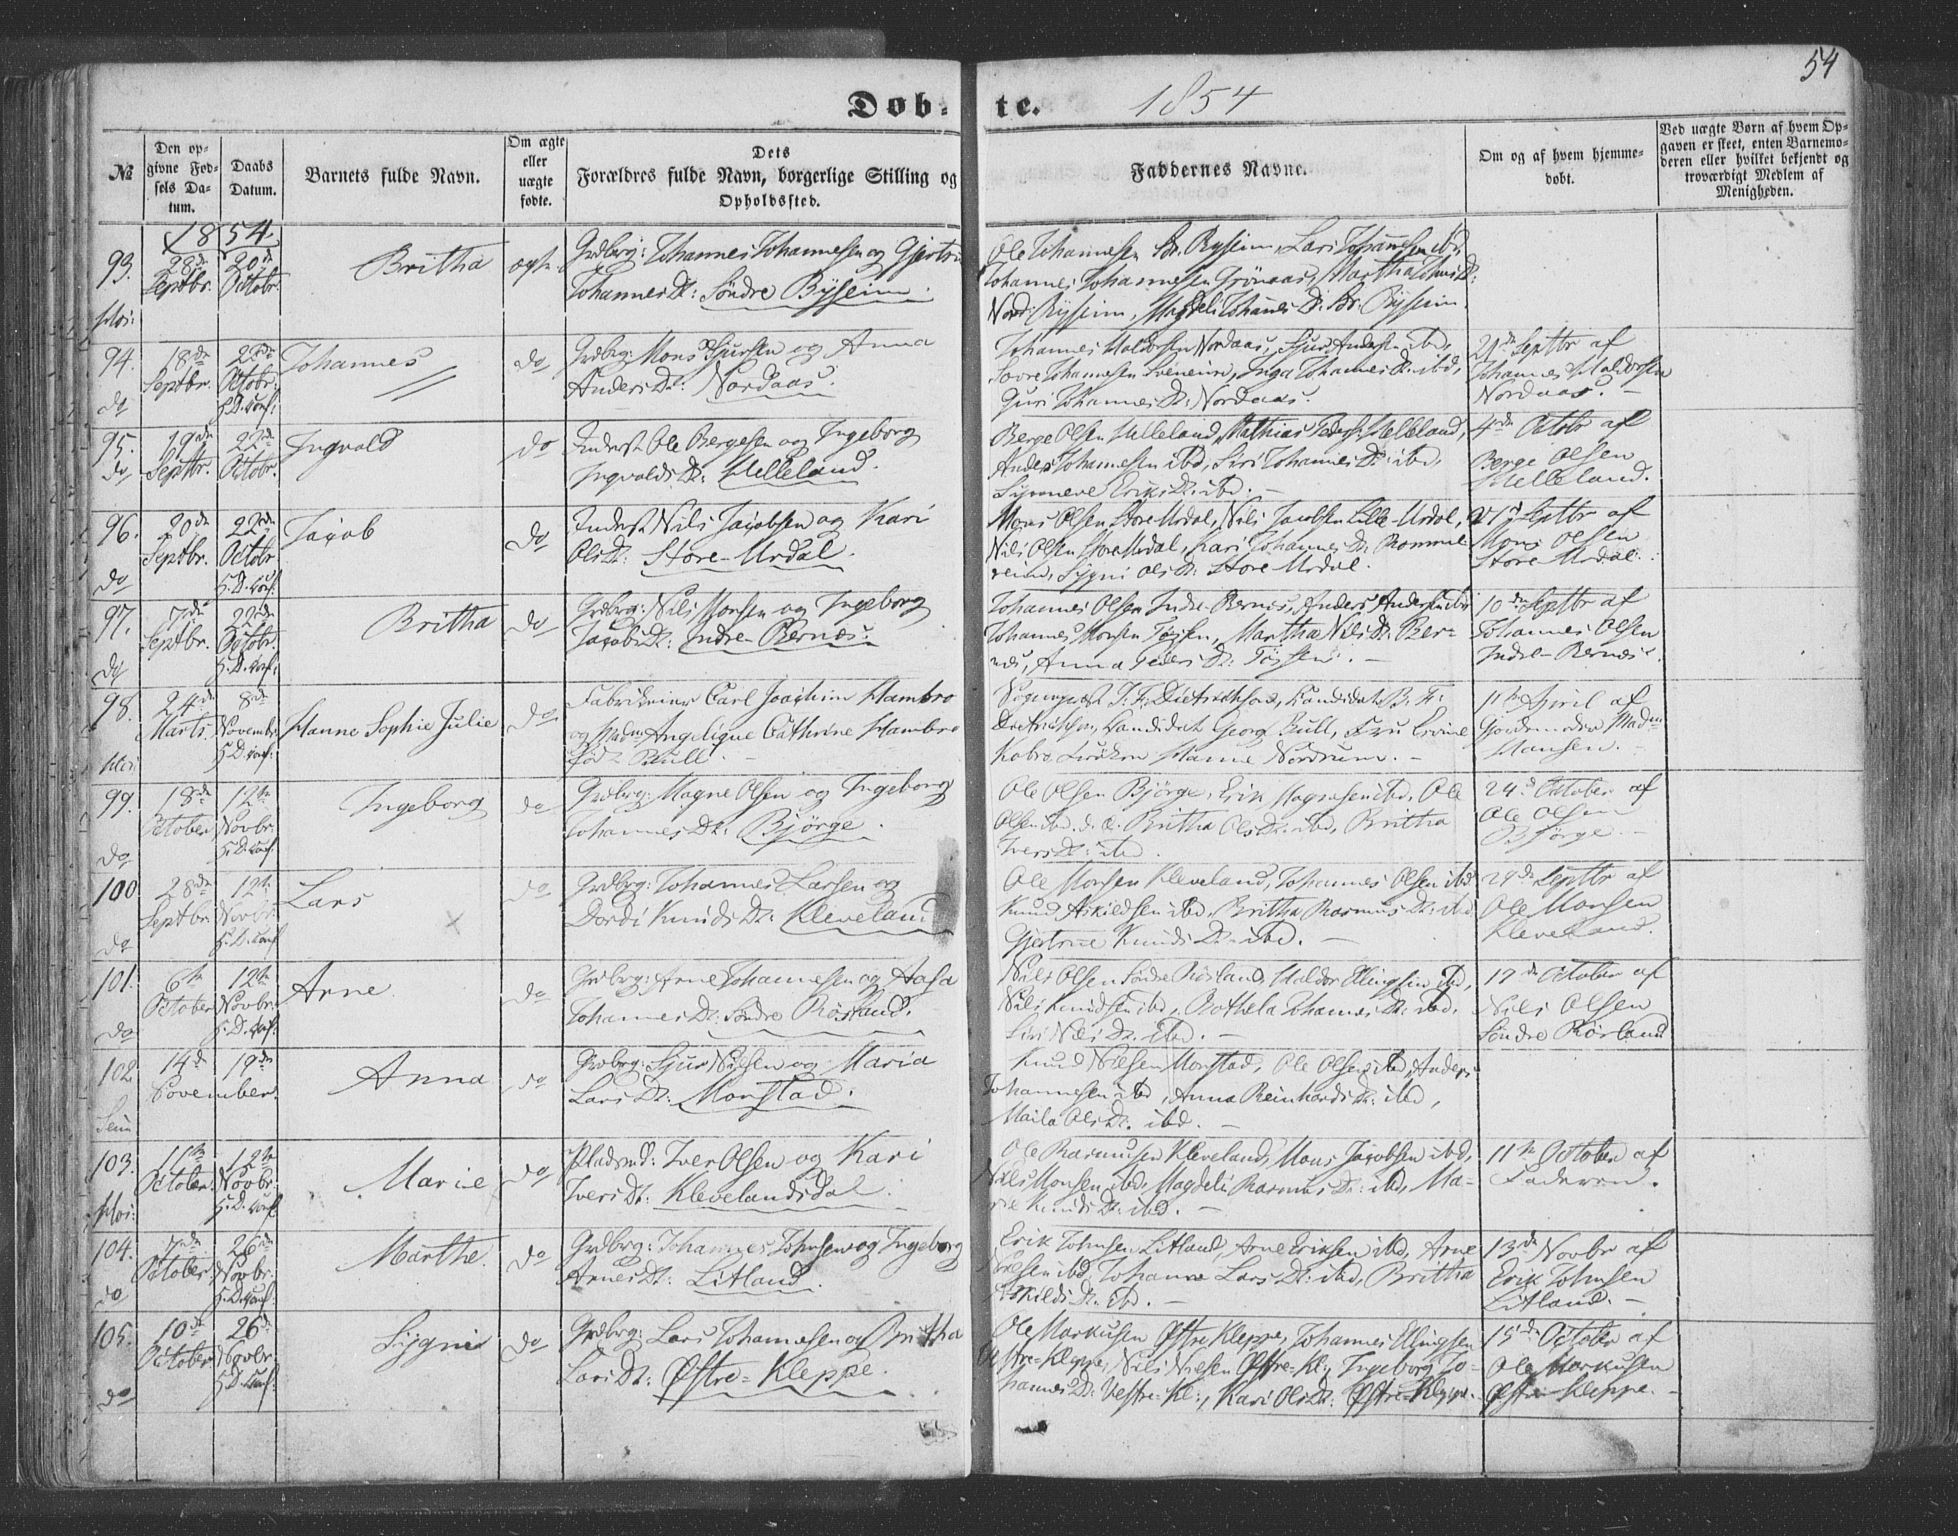 54
Døb-te. 1854
№
Den op-
givne Fød-
sels Da-
tum.
Daabs
Datum.
Barnets fulde Navn.
Om ægte
eller
uægte
fødte.
Dets
Forældres fulde Navn, borgerlige Stilling og
Opholdssted.
Faddernes Navne.
Om og af hvem hjemme-
døbt.
Ved uægte Børn af hvem Op-
gaven er skeet, enten Barnemo-
deren eller hvilket bekjendt og
troværdigt Medlem af
Menigheden.
1854.
93.
28de
Septbr.
20de
Octobr.
Britha
ægte
Grdbrg: Johannes Johannesen og Gjertru
Johannes Dt: Søndre Rysseim.
Ole Johannesen Sr. Rysseim, Lars Johannesen ibd,
Johannes Johannesen Grønaas, Martha Johns D:
Nord: Rysseim, Magdeli Johannes D. Sr. Rysseim
94.
do
18de
Septbr.
22de
Octobr.
H.D. conf:
Johannes
do
Grdbrg: Mons Sjursen og Anna
Anders Dt: Nordaas.
Johannes Haldorsen Nordaas, Sjur Andersen ibd,
Sovre Johannesen, Inga Johannes Dt. ibd,
Guri Johannes Dt. Nordaas.
21de Septbr af
Johannes Haldorsen
Nordaas. –
95.
do
19de
Septbr.
22de
Octobr.
Ingvald
do
Inderst Ole Bergesen og Ingeborg
Ingvalds Dt: Helleland.
Berge Olsen Helleland, Mathias Peders. Helleland,
Anders Johannesen ibd, Siri Johannes Dt: ibd,
Synneve Eriks Dt. ibd. –
4de Octobr af
Berge Olsen
Helleland.
96.
do
20de
Septbr.
22de
Octobr
H.D. conf:
Jacob
do
Inderst Nils Jacobsen og Kari
Ols Dt: Store-Urdal.
Mons Olsen Store Urdal, Nils Jacobsen Lille-Urdal,
Nils Olsen Store Urdal, Kari Johannes Dt. Rommel-
reim, Sygni Ols Dt: Store Urdal.
21de Septbr af
Mons Olsen
Store Urdal.
97.
do
7de
Septbr.
22de
Octobr.
H.D. conf:
Britha
do
Grdbrg: Nils Monsen og Ingeborg
Jacobs Dt: Indre-Bernæs.
Johannes Olsen Indre-Bernæs, Anders Andersen ibd
Johannes Monsen Tøssen, Martha Nils Dt: Ber-
næs, Anna Peders Dt: Tøssen. –
10de Septbr af
Johannes Olsen
Indre-Bernæs.
98.
24de
Marts
8de
Novembr.
H.D. conf:
Hanne Sophie Julie
do
Fabrikeier Carl Joachim Hambro
og Madm Angelique Cathrine Hambro
fød: Bull. –
Sogneprest J. F. Dietrichson, Kandidat B. F.
Dietrichson, Kandidat Georg Bull, Fru Ervine
Kobro, Frøken Hanne Nordrum. –
11te April af
Gjordemoder Madm
Hansen. –
99.
do
18de
October
12te
Novbr.
H.D. conf.
Ingeborg
do
Grdbrg: Magne Olsen og Ingeborg
Johannes Dt: Bjørge.
Ole Olsen Bjørge, Erik Magnesen ibd, Ole
Olsen ibd. d. æ. Britha Ols Dt: ibd, Britha
Ivers Dt: ibd.
24de October af
Ole Olsen
Bjørge –
100
do
28de
Septbr
12te
Novbr.
H.D. conf
Lars
×
do
Grdbrg: Johannes Larsen og
Dordi Knuds Dt: Kleveland
Ole Monsen Kleveland, Johannes Olsen ibd
Knud Askildsen ibd, Britha Rasmus Dt: ibd
Gjertrue Knuds Dt: ibd. –
29de Septbr af
Ole Monsen
Kleveland.
101.
do
6te
October
12te
Novbr.
H.D. conf:
Arne
do
Grdbrg: Arne Johannesen og Aasa
Johannes Dt: Søndre Rørland.
Nils Olsen Søndre Rørland, Haldor Ellingsen ibd,
Nils Knudsen ibd, Bothela Johannes Dt: ibd.
Siri Nils Dt. ibd. –
19de October af
Nils Olsen
Søndre Rørland
102
14de
19de
November.
Anna
do
Grdbrg: Sjur Nilsen og Maria
Lars Dt: Monstad.
Knud Nilsen Monstad, Ole Olsen ibd, Anders
Johannesen ibd, Anna Reinhards Dt: ibd,
Maila Ols Dt. ibd. –
103.
11te
October
12te
Novbr.
H.D. conf.
Marie
do
Pladsmd: Iver Olsen og Kari
Ivers Dt: Klevelandsdal.
Ole Rasmusen Kleveland, Mons Jacobsen ibd,
Nils Monsen ibd, Magdeli Rasmus Dt: ibd, Ma-
rie Knuds Dt: ibd. –
11te October af
Faderen.
104.
do
7de
October
26de
Novbr.
H.D. conf:
Marthe.
do
Grdbrg: Johannes Johnsen og Ingeborg
Arnes Dt: Litland.
Erik Johnsen Litland, Arne Eriksen ibd, Arne
Nilsen ibd, Johanna Lars Dt: ibd, Britha
Askilds Dt: ibd. –
13de Novbr af
Erik Johnsen
Litland. –
105.
do
10de
October
26de
Novbr.
H.D. conf:
Sygni
do
Grdbrg: Lars Johannesen og Britha
Lars Dt: Østre-Kleppe.
Ole Markusen Østre Kleppe, Johannes Ellingsen
Østre-Kleppe, Nils Nilsen Østre-Kl:, Ingeborg Jo-
hannes Dt. Vestre-Kl:, Kari Ols Dt: Østre-Kleppe.
15de October af
Ole Markusen
Østre Kleppe. –